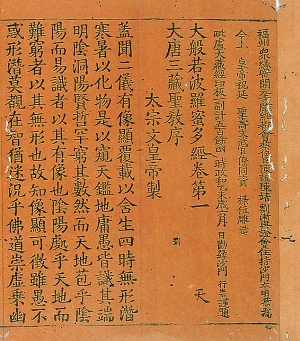 福州眾緣寄開元寺雕經都會蔡俊臣陳詢陳靖劉漸與證會住持沙門本明恭為
今上皇帝祝延 聖壽文武官僚同資 祿位雕造
毗盧大藏經印板一副計五百餘函時政和乙未歲八月 日勸緣沙門 行崇謹題
大般若波羅蜜多經卷第一 天
大唐三藏聖教序
太宗文皇帝製
蓋聞二儀有像顯覆載以含生四時無形潛
寒暑以化物是以窺天鑑地庸愚皆識其端
明陰洞陽賢哲罕窮其數然而天地苞乎陰
陽而易識者以其有像也陰陽處乎天地而
難窮者以其無形也故知像顯可徵雖愚不
惑形潛莫覩在智猶迷況乎佛道崇虛乘幽